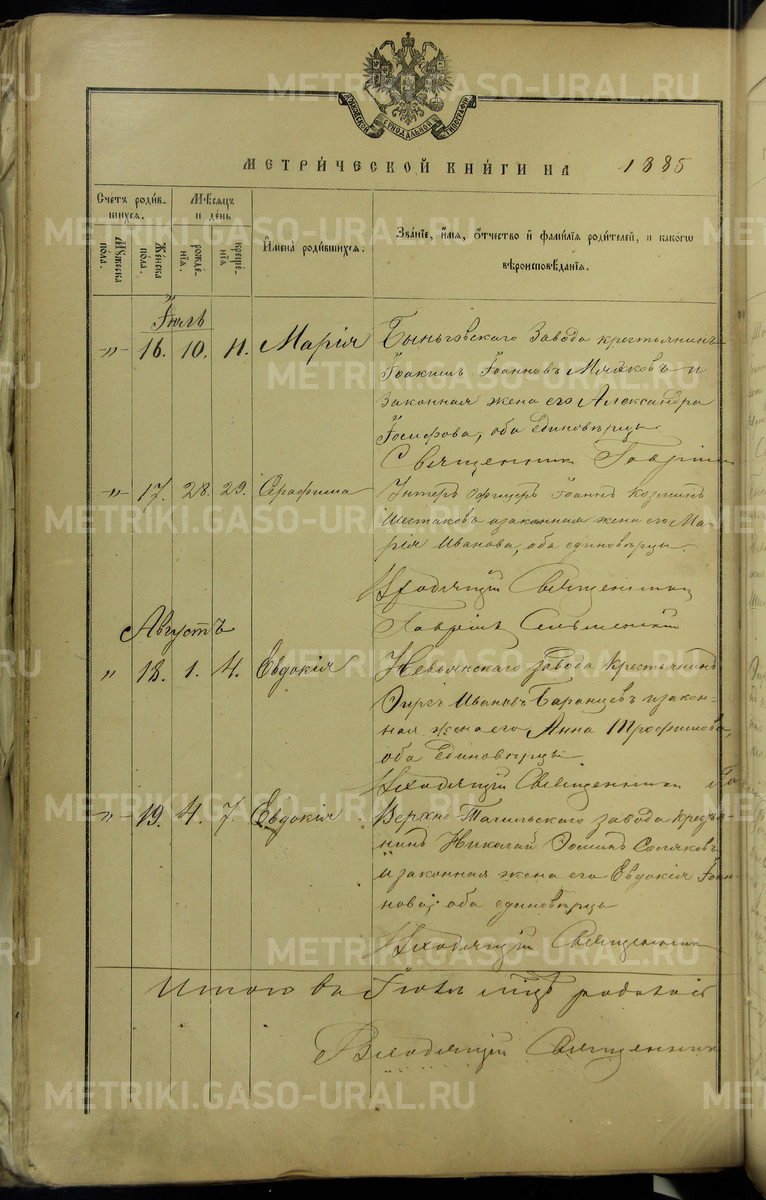 МОСКОВСКОЙ СѴНОДАЛЬНОЙ ТИПОГРАФІИ
МЕТРИ́ЧЕСКОЙ КНИ́ГИ НА 1885
Счетъ роди́вшихся.
Мꙋжеска пола.
Же́нска пола.
Мѣ́сяцъ и де́нь
рожде́нїя.
креще́нїя
И҆мена̀ роди́вшихся.
Зва́нїе, и҆́мя, ѻ҆́тчество и҆ фами́лїя роди́телей, и҆ како́гѡ вѣроисповѣ́данїя.
Іюль
" 16. 10. 11. Марія
Быньговскаго Завода крестьянинъ
Іоакимъ Іоанновъ Мядковъ и
законная жена его Александра
Іосифова, оба единовѣрцы
Священникъ Гавріи
" 17. 28. 29. Серафима
Унтеръ Офицеръ Іоаннъ Козминъ
Шестаковъ и законная жена его Ма-
рія Иванова, оба единовѣрцы.
Священникъ
Гавріилъ
Августъ
" 18. 1. 4. Евдокія
Невьянскаго завода крестьянинъ
Иванъ Баранцевъ и закон-
ная жена его Анна Трофимова,
оба единовѣрцы
Священникъ
" 19. 4. 7. Евдокія
Верхне-Тагильскаго завода крестья-
нинъ Николай Ѳоминъ
и законная жена его Евдокія Іоан-
нова; оба единовѣрцы
Священникъ
Итого въ Іюлѣ родилось
Священникъ
METRIKI.GASO-URAL.RU